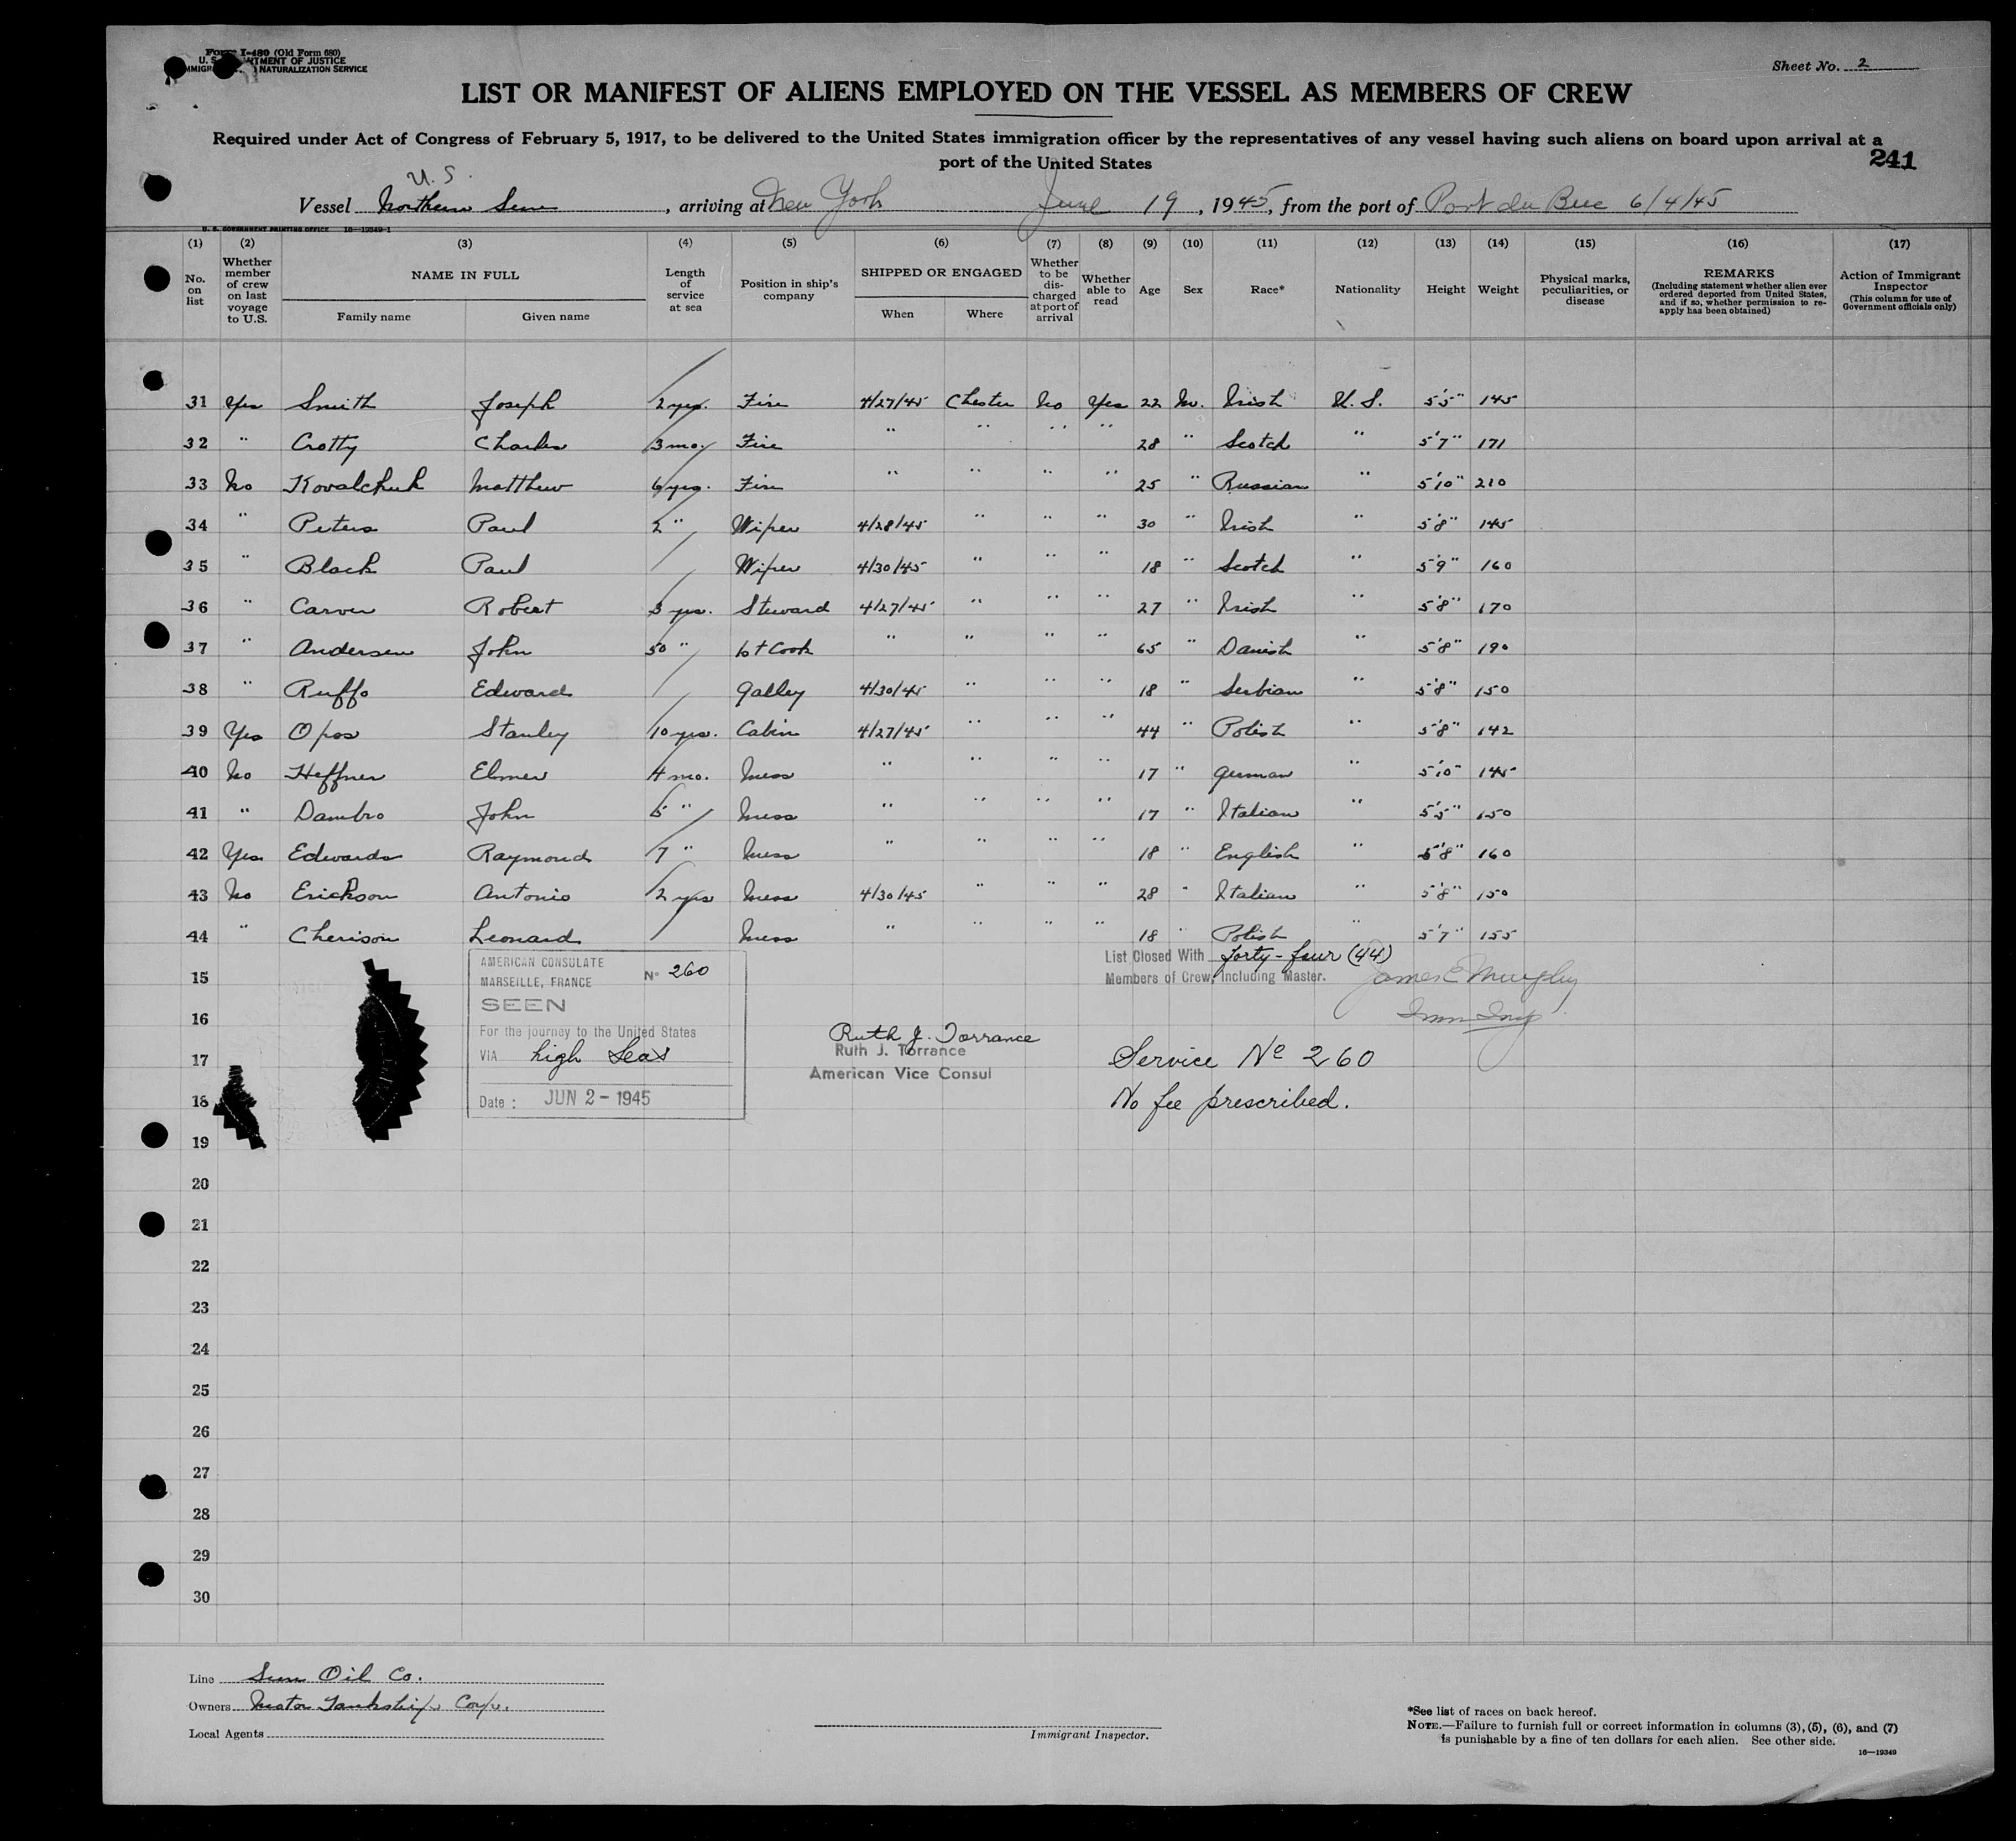 Form I-480 (Old Form 680)
U. S. DEPARTMENT OF JUSTICE
IMMIGRATION NATURALIZATION SERVICE
Sheet No. 2
LIST OR MANIFEST OF ALIENS EMPLOYED ON THE VESSEL AS MEMBERS OF CREW
Required under Act of Congress of February 5, 1917, to be delivered to the United States immigration officer by the representatives of any vessel having such aliens on board upon arrival at a
port of the United States
241
U. S.
Vessel Northern Sun, arriving at New York June 19, 1945, from the port of Port du Buc 6/4/45
U. S. GOVERNMENT PRINTING OFFICE 16—19349-1
(1) (2) (3) (4) (5) (6) (7) (8) (9) (10) (11) (12) (13) (14) (15) (16) (17)
No. on list
Whether member of crew on last voyage to U.S.
NAME IN FULL
Family name Given name
Length of service at sea
Position in ship's company
SHIPPED OR ENGAGED
When Where
Whether to be discharged at port of arrival
Whether able to read
Age
Sex
Race*
Nationality
Height
Weight
Physical marks, peculiarities, or disease
REMARKS
(Including statement whether alien ever ordered deported from United States, and if so, whether permission to reapply has been obtained)
Action of Immigrant Inspector
(This column for use of Government officials only)
31 Yes Smith Joseph 2 yrs. Fire 4/27/45 Chester No Yes 22 M. Irish U. S. 5'5" 145
32 " Crotty Charles 3 mo. Fire " " " " 28 " Scotch " 5'7" 171
33 No Kovalchuk Matthew 6 yrs. Fire " " " " 25 " Russian " 5'10" 210
34 " Peters Paul 2 " Wiper 4/28/45 " " " 30 " Irish " 5'8" 145
35 " Black Paul Wiper 4/30/45 " " " 18 " Scotch " 5'9" 160
36 " Carver Robert 3 yrs. Steward 4/27/45 " " " 27 " Irish " 5'8" 170
37 " Andersen John 50 " 1st Cook " " " " 65 " Danish " 5'8" 190
38 " Ruffo Edward Galley 4/30/45 " " " 18 " Serbian " 5'8" 150
39 Yes Opos Stanley 10 yrs. Cabin 4/27/45 " " " 44 " Polish " 5'8" 142
40 No Heffner Elmer 4 mo. Mess " " " " 17 " German " 5'10" 145
41 " Dambro John 5 " Mess " " " " 17 " Italian " 5'5" 150
42 Yes Edwards Raymond 7 " Mess " " " " 18 " English " 5'8" 160
43 No Erickson Antonio 2 yrs Mess 4/30/45 " " " 28 " Italian " 5'8" 150
44 " Cherison Leonard Mess " " " " 18 " Polish " 5'7" 155
List Closed With forty-four (44)
Members of Crew, Including Master.
James E Murphy
Imm Insp
AMERICAN CONSULATE
MARSEILLE, FRANCE
No 260
SEEN
For the journey to the United States
VIA high Seas
Date : JUN 2 - 1945
Ruth J. Torrance
Ruth J. Torrance
American Vice Consul
Service No 260
No fee prescribed.
15
16
17
18
19
20
21
22
23
24
25
26
27
28
29
30
Line Sun Oil Co.
Owners Motor Tankship Corp.
Local Agents
Immigrant Inspector.
*See list of races on back hereof.
NOTE.—Failure to furnish full or correct information in columns (3), (5), (6), and (7)
is punishable by a fine of ten dollars for each alien. See other side.
16—19349